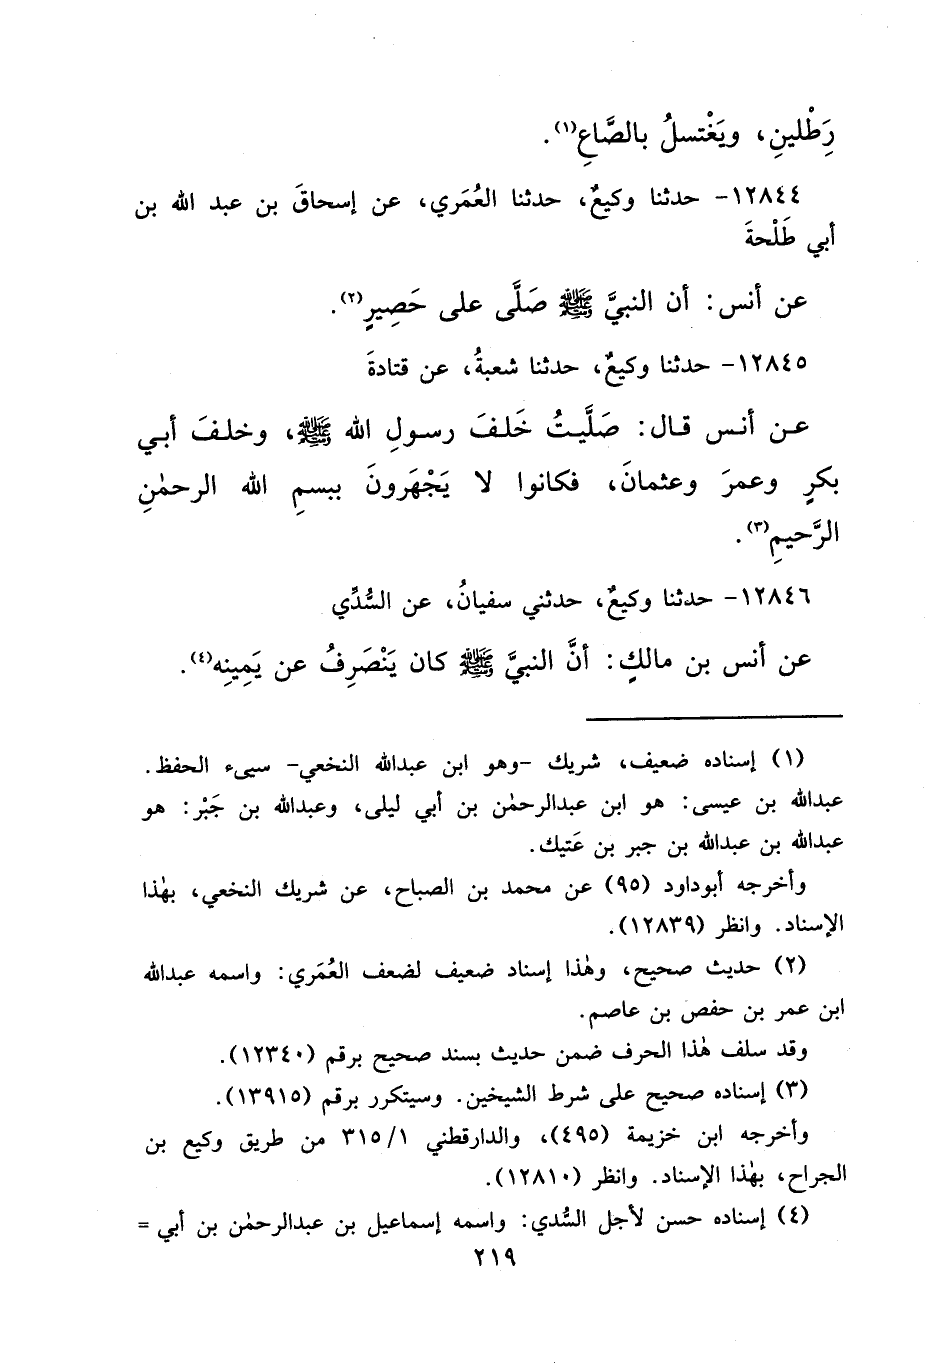 رِطْلينِ، ويَغْتسلُ بالصَّاعِ(١).
١٢٨٤٤- حدثنا وكيعٌ، حدثنا العُمَري، عن إسحاقَ بن عبد الله بن
أبي طَلْحةَ
عن أنس: أن النبيَّ ﷺ صَلَّى على حَصِيرٍ(٢).
١٢٨٤٥- حدثنا وكيعٌ، حدثنا شعبةُ، عن قتادةَ
عن أنس قال: صَلَّيتُ خَلفَ رسولِ الله ﷺ، وخلفَ أبي
بكرٍ وعمرَ وعثمانَ، فكانوا لا يَجْهَرونَ ببسمِ الله الرحمٰنِ
الرَّحيمِ(٣).
١٢٨٤٦- حدثنا وكيعٌ، حدثني سفيانُ، عن السُّدِّي
عن أنس بن مالكٍ: أنَّ النبيَّ ﷺ كان يَنْصَرِفُ عن يَمِينِه(٤).
(١) إسناده ضعيف، شريك -وهو ابن عبدالله النخعي- سيىء الحفظ.
عبدالله بن عيسى: هو ابن عبدالرحمٰن بن أبي ليلى، وعبدالله بن جَبْر: هو
عبدالله بن عبدالله بن جبر بن عَتيك.
وأخرجه أبوداود (٩٥) عن محمد بن الصباح، عن شريك النخعي، بهٰذا
الإسناد. وانظر (١٢٨٣٩).
(٢) حديث صحيح، وهٰذا إسناد ضعيف لضعف العُمَري: واسمه عبدالله
ابن عمر بن حفص بن عاصم.
وقد سلف هٰذا الحرف ضمن حديث بسند صحيح برقم (١٢٣٤٠).
(٣) إسناده صحيح على شرط الشيخين. وسيتكرر برقم (١٣٩١٥).
وأخرجه ابن خزيمة (٤٩٥)، والدارقطني ٣١٥/١ من طريق وكيع بن
الجراح، بهٰذا الإسناد. وانظر (١٢٨١٠).
(٤) إسناده حسن لأجل السُّدي: واسمه إسماعيل بن عبدالرحمٰن بن أبي =
٢١٩